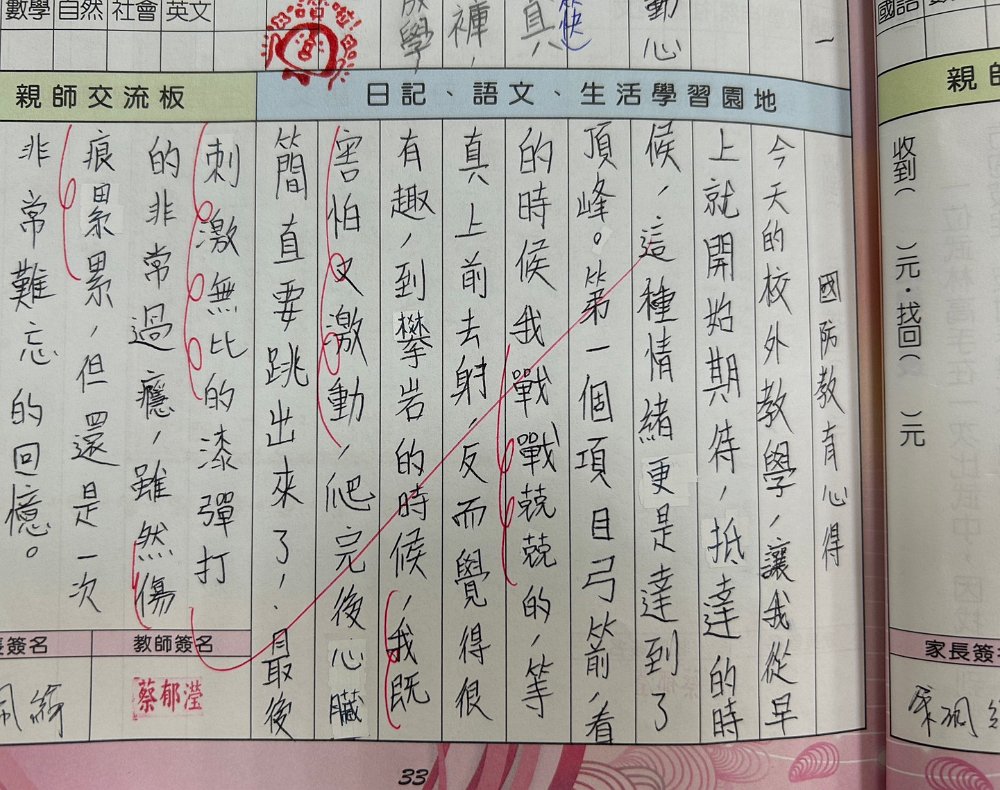 數學 自然 社會 英文
國語
日記、語文、生活學習園地
親師交流板
國防教有心得
今天的校外教學，讓我從早
上就開始期待，抵達的時
候，這種情緒更是達到了
頂峰。第一個項目弓箭，看
的時候我戰戰兢兢的，等
真上前去射，反而覺得很
有趣，到攀岩的時候，我既
害怕又激動，爬完後心臟
簡直要跳出來了，最後
刺激無比的漆彈打
的非常過癮，雖然傷
痕累累，但還是一次
非常難忘的回憶。
教師簽名
蔡郁瀅
簽名
33
親師
收到( )元・找回( )元
家長簽名